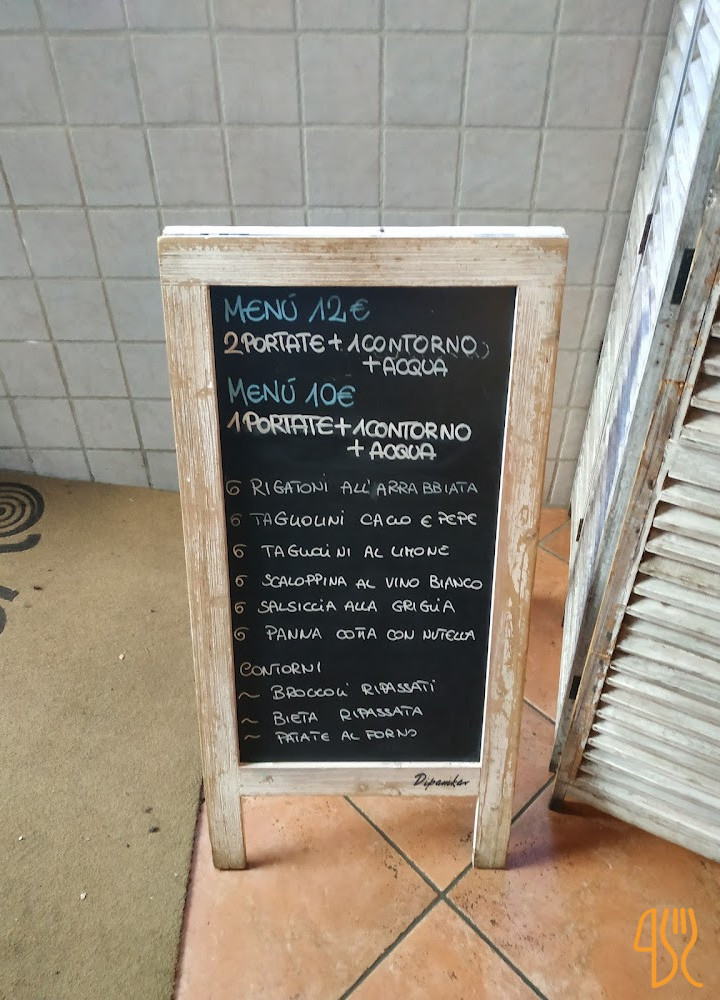 MENÚ 12€
2 PORTATE + 1 CONTORNO
+ ACQUA
MENÚ 10€
1 PORTATE + 1 CONTORNO
+ ACQUA
6 RIGATONI ALL'ARRABBIATA
6 TAGLIOLINI CACIO E PEPE
6 TAGLIOLINI AL LIMONE
6 SCALOPPINA AL VINO BIANCO
6 SALSICCIA ALLA GRIGLIA
6 PANNA COTTA CON NUTELLA
CONTORNI
~ BROCCOLI RIPASSATI
~ BIETA RIPASSATA
~ PATATE AL FORNO